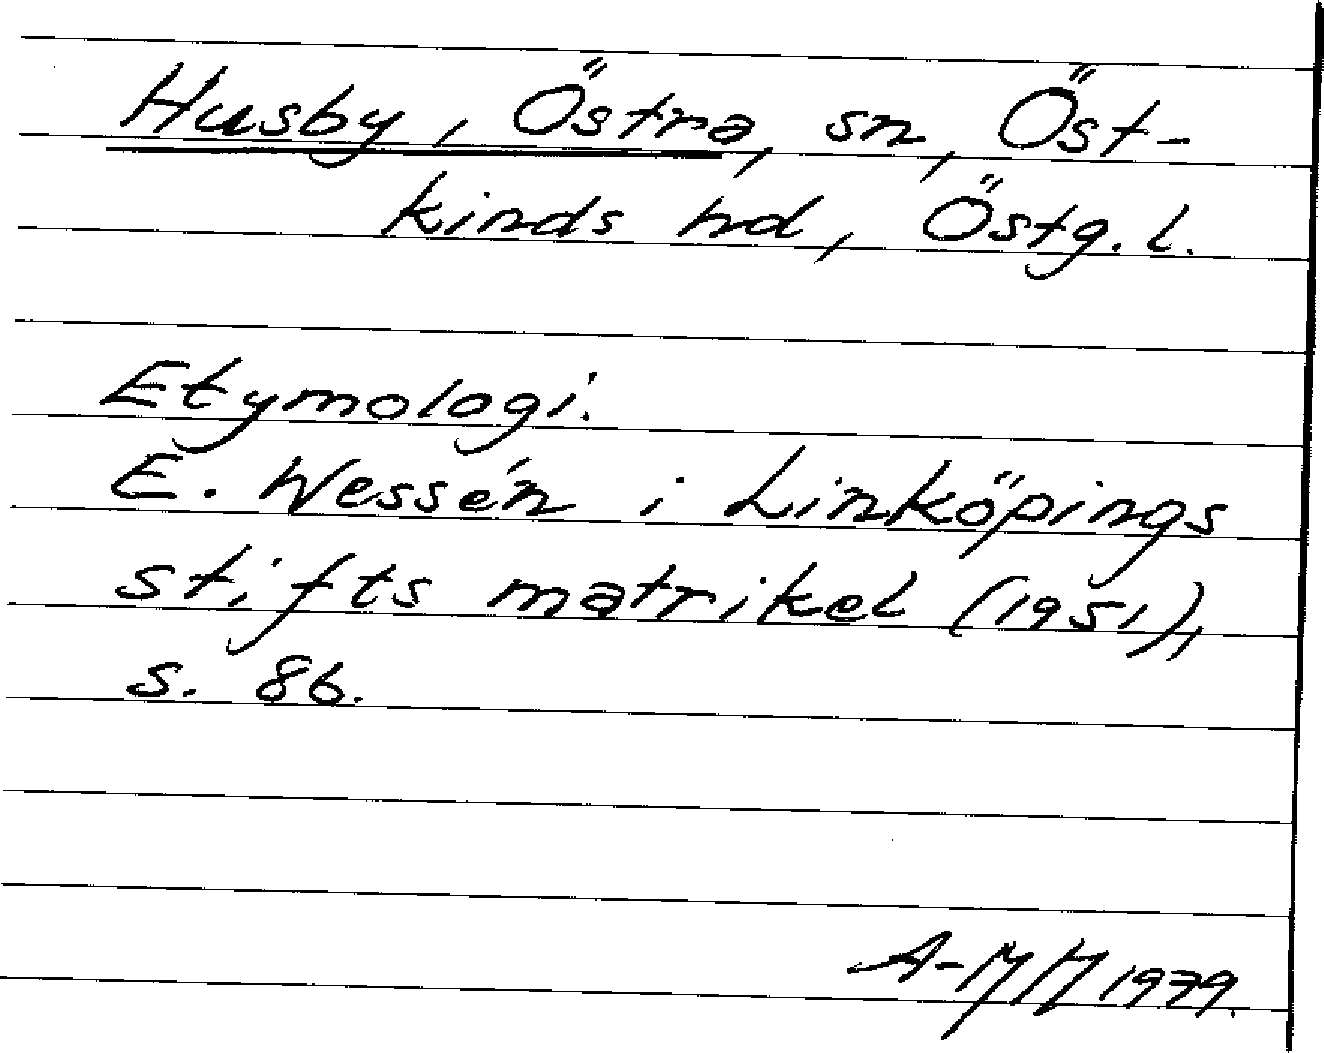 Husby, Östra, sn, Öst-
kinds hd, Östg. l.
Etymologi.
E. Wessén i Linköpings
stifts matrikel (1951),
s. 86.
1979.